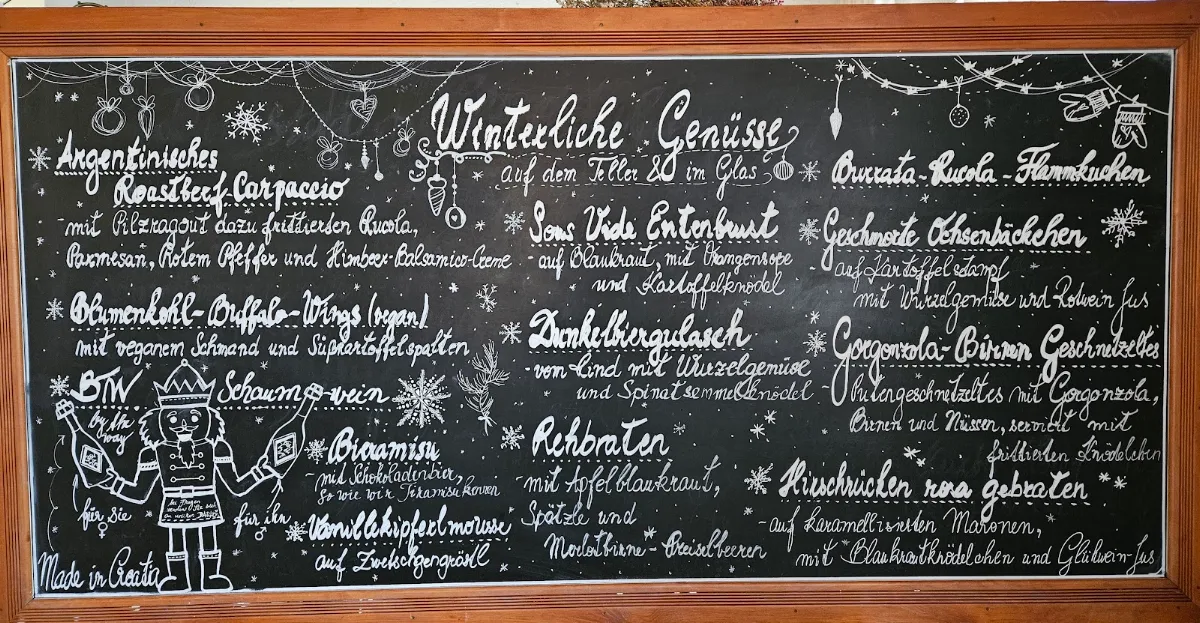 Winterliche Genüsse
auf dem Teller & im Glas
Argentinisches
Roastberf Carpaccio
- mit Pilzragout dazu frittierten Rucola,
Parmesan, Rotem Pfeffer und Himbeer-Balsamico-Creme
Blumenkohl-Buffalo-Wings (vegan)
mit veganem Schmand und Süßkartoffelspalten
BTW Schaumwein
by the
way
für Sie
für ihn
Made in Croatia
Bieramisu
- mit Schokoladenbier,
so wie wir Tiramisu kennen
Vanillekipferlmousse
auf Zwetschgengröstl
Sous Vide Entenbrust
- auf Blaukraut, mit Orangensoße
und Kartoffelknödel
Dunkelbiergulasch
- vom Rind mit Wurzelgemüse
und Spinatsemmelknödel
Rehbraten
- mit Apfelblaukraut,
Spätzle und
Portweinbirne - Preiselbeeren
Burrata-Rucola-Flammkuchen
Geschmorte Ochsenbäckchen
- auf Kartoffelstampf
mit Wurzelgemüse und Rotwein Jus
Gorgonzola-Birnen Geschnetzeltes
- Putengeschnetzeltes mit Gorgonzola,
Birnen und Nüssen, serviert mit
frittierten Knödelchen
Hirschrücken rosa gebraten
- auf karamellisierten Maronen,
mit Blaukrautknödelchen und Glühwein-Jus